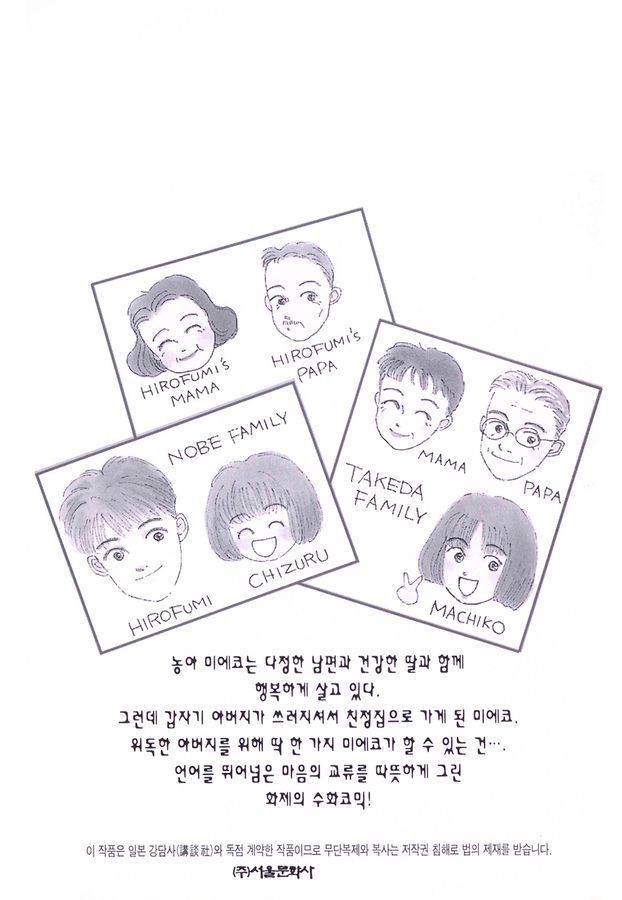 HIROFUMI'S
MAMA
HIROFUMI'S
PAPA
NOBE FAMILY
HIROFUMI
CHIZURU
MAMA
PAPA
TAKEDA
FAMILY
MACHIKO
농아 미에코는 다정한 남편과 건강한 딸과 함께
행복하게 살고 있다.
그런데 갑자기 아버지가 쓰러지셔서 친정집으로 가게 된 미에코.
위독한 아버지를 위해 딱 한 가지 미에코가 할 수 있는 건….
언어를 뛰어넘은 마음의 교류를 따뜻하게 그린
화제의 수화코믹!
이 작품은 일본 강담사(講談社)와 독점 계약한 작품이므로 무단복제와 복사는 저작권 침해로 법의 제재를 받습니다.
(주)서울문화사